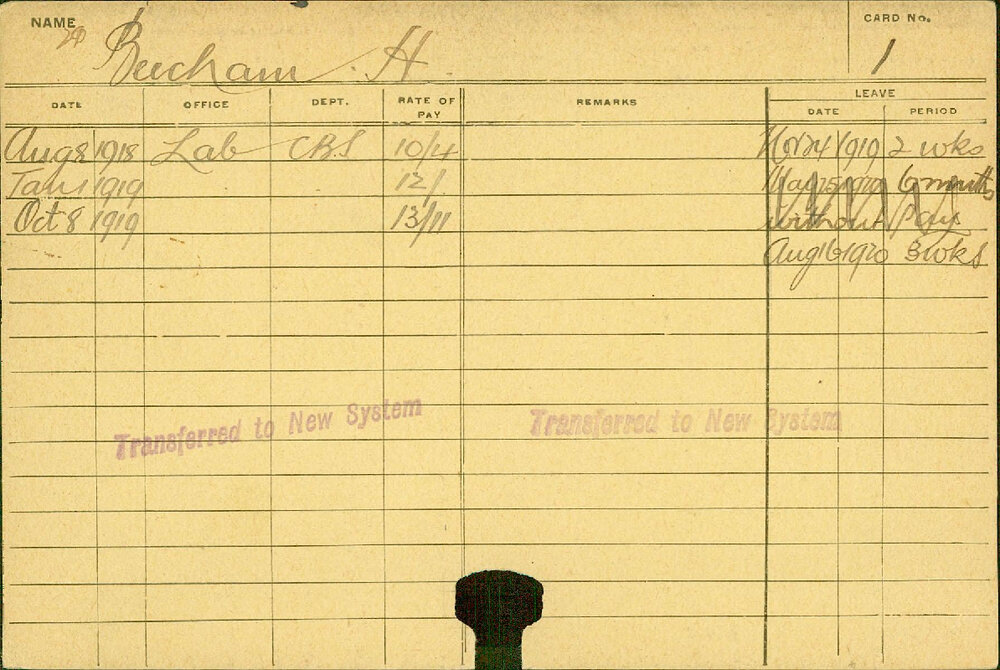 NAME Beecham. H.
CARD No. 1
DATE OFFICE DEPT. RATE OF PAY REMARKS LEAVE DATE PERIOD
Aug 8 1918 Lab CBS 10/4 Nov 24 1919 2 wks
Jan 1 1919 12/ May 25 1920 6 months
Oct 8 1919 13/11 without Pay
Aug 16 1920 3 wks
Transferred to New System Transferred to New System